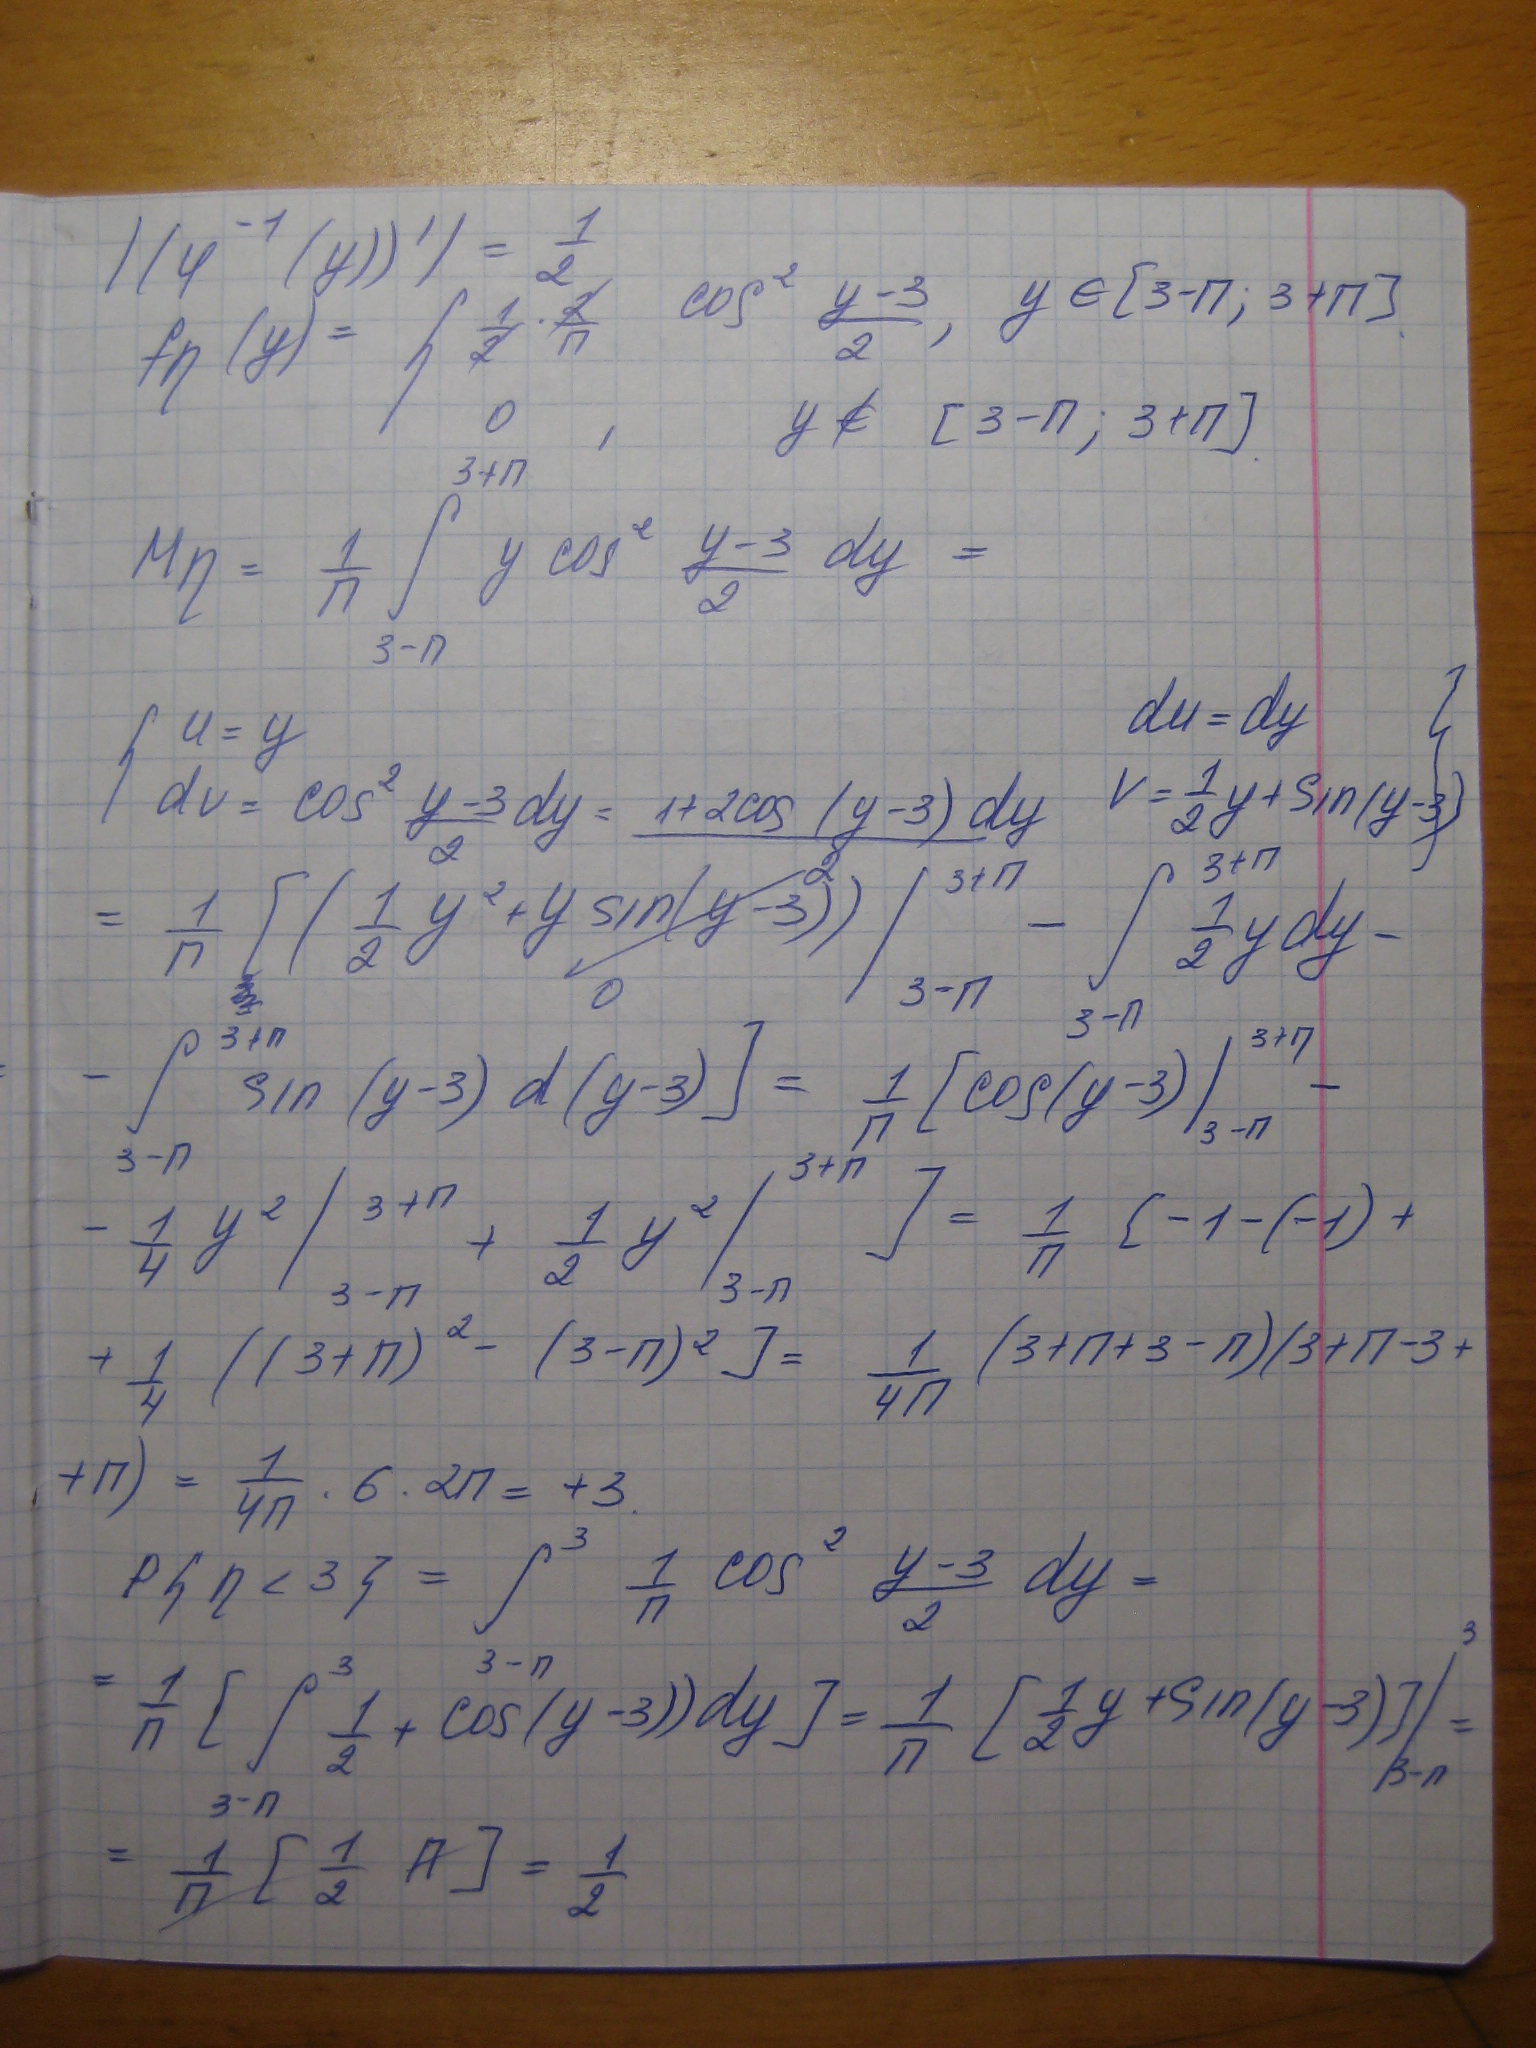 |(φ⁻¹(y))'| = 1/2
fη(y) = { 1/2 · 2/π cos² (y-3)/2, y ∈ [3-π; 3+π].
0, y ∉ [3-π; 3+π].
Mη = 1/π ∫_{3-π}^{3+π} y cos² (y-3)/2 dy =
{ u = y du = dy }
{ dv = cos² (y-3)/2 dy = (1+2cos(y-3))/2 dy V = 1/2 y + sin(y-3) }
= 1/π [(1/2 y² + y sin(y-3)) |_{3-π}^{3+π} - ∫_{3-π}^{3+π} 1/2 y dy -
0
- ∫_{3-π}^{3+π} sin(y-3) d(y-3)] = 1/π [cos(y-3) |_{3-π}^{3+π} -
- 1/4 y² |_{3-π}^{3+π} + 1/2 y² |_{3-π}^{3+π}] = 1/π [-1-(-1) +
+ 1/4 ((3+π)² - (3-π)²] = 1/4π (3+π+3-π)(3+π-3+
+π) = 1/4π · 6 · 2π = +3.
P{η < 3} = ∫_{3-π}^{3} 1/π cos² (y-3)/2 dy =
= 1/π [∫_{3-π}^{3} 1/2 + cos(y-3)) dy] = 1/π [1/2 y + sin(y-3)] |_{3-π}^{3} =
= 1/π [1/2 π] = 1/2